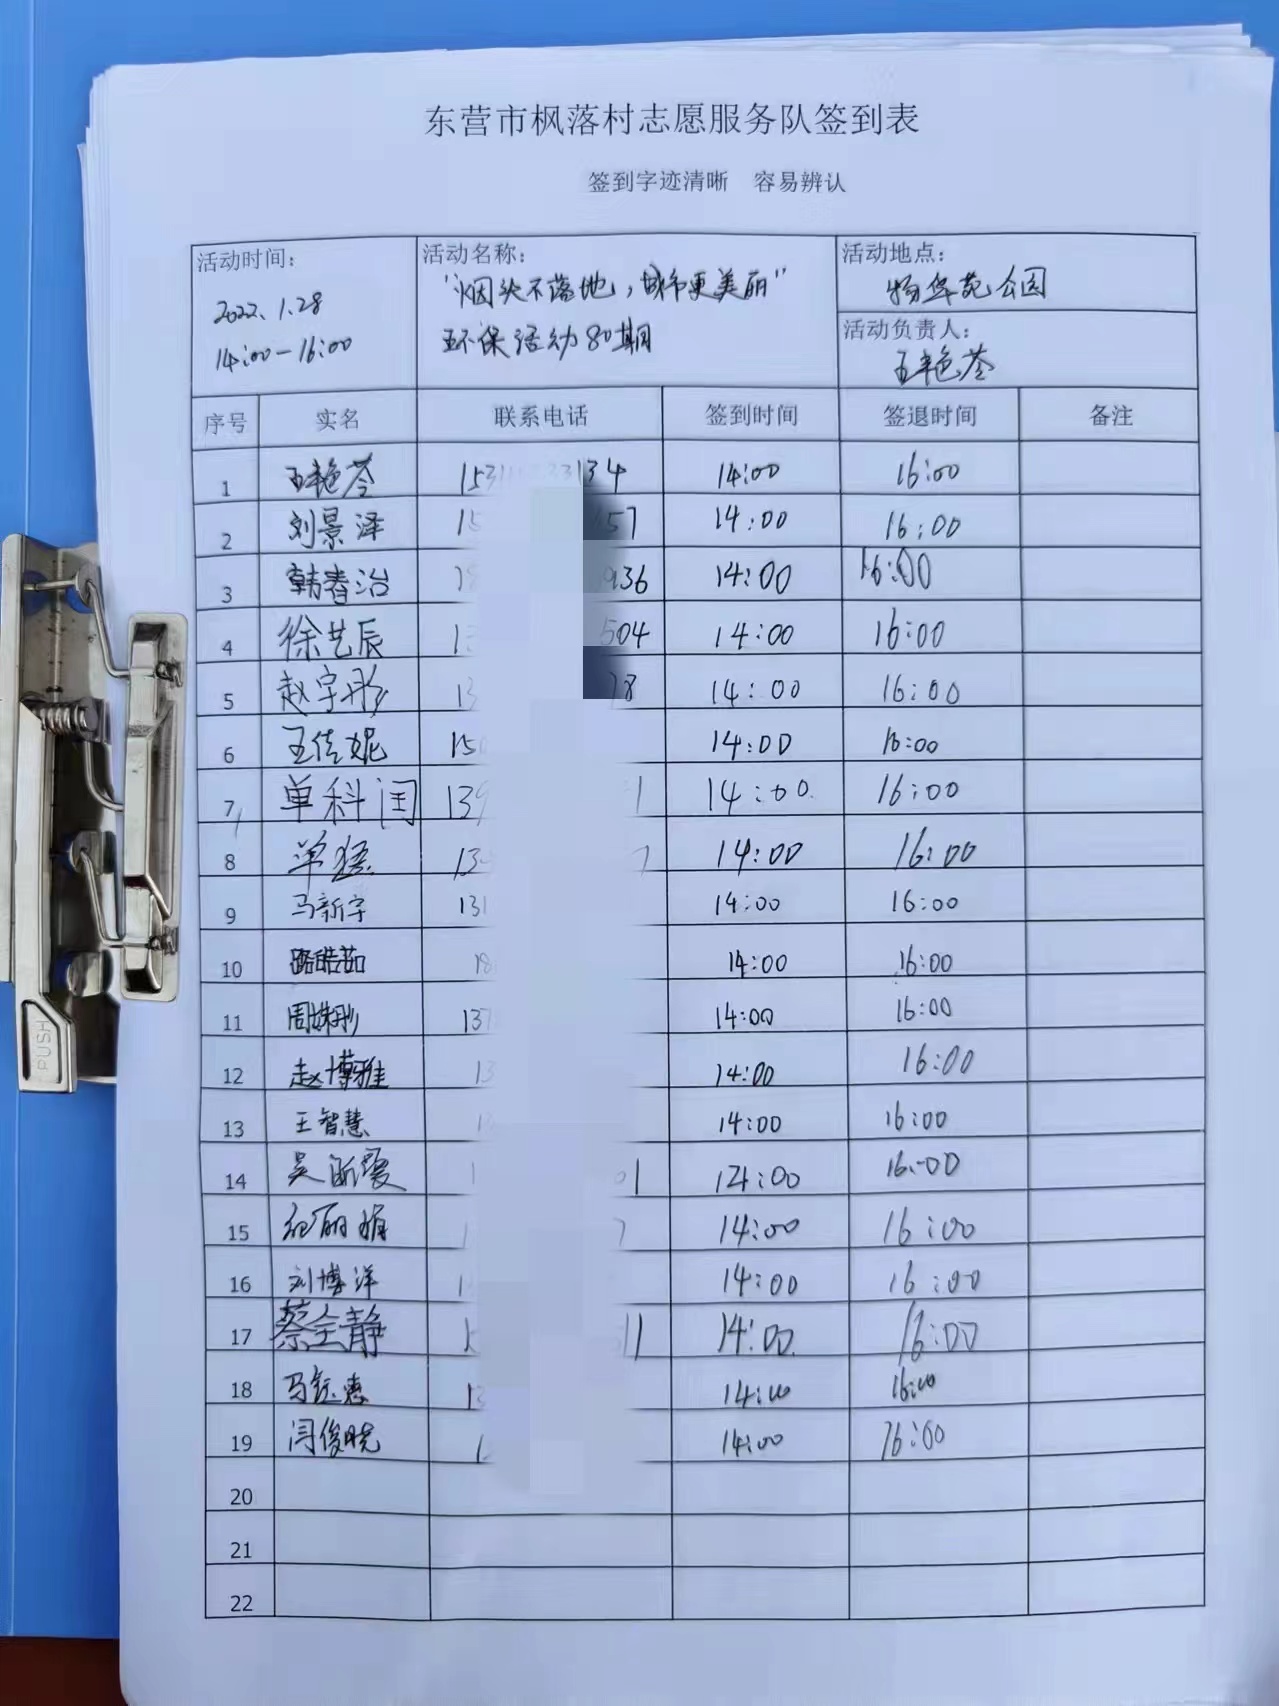 东营市枫落村志愿服务队签到表
签到字迹清晰 容易辨认
活动时间: 2022.1.28 14:00-16:00
活动名称: "烟头不落地,城市更美丽" 环保活动80期
活动地点: 杨华苑公园
活动负责人: 王艳苓
序号 实名 联系电话 签到时间 签退时间 备注
1 王艳苓 14:00 16:00
2 刘景泽 14:00 16:00
3 韩春治 936 14:00 16:00
4 徐艺辰 504 14:00 16:00
5 赵宇彤 14:00 16:00
6 王佳妮 14:00 16:00
7 单科闰 14:00 16:00
8 单 14:00 16:00
9 马新宇 131 14:00 16:00
10 14:00 16:00
11 周姝彤 137 14:00 16:00
12 赵博雅 13 14:00 16:00
13 王智慧 14:00 16:00
14 吴 14:00 16:00
15 丽娟 14:00 16:00
16 刘博洋 14:00 16:00
17 蔡全静 14:00 16:00
18 马钰惠 14:00 16:00
19 闫俊晓 14:00 16:00
20
21
22
PUSH